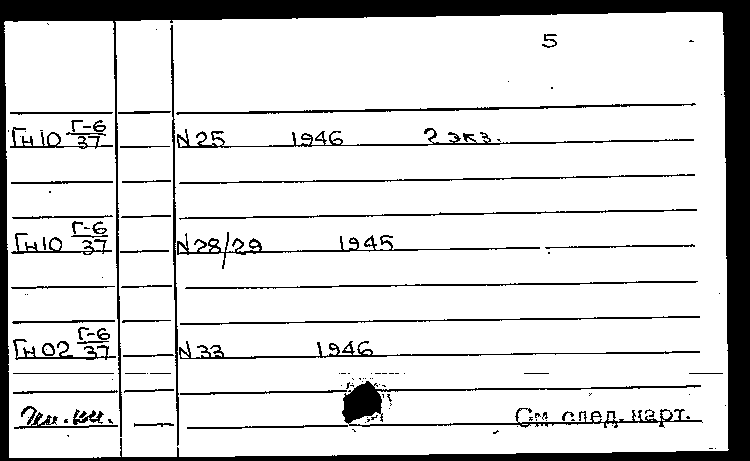 5
Гн10 Г-6/37 N25 1946 2 экз.
Гн10 Г-6/37 N28/29 1945
Гн02 Г-6/37 N33 1946
См. след. карт.